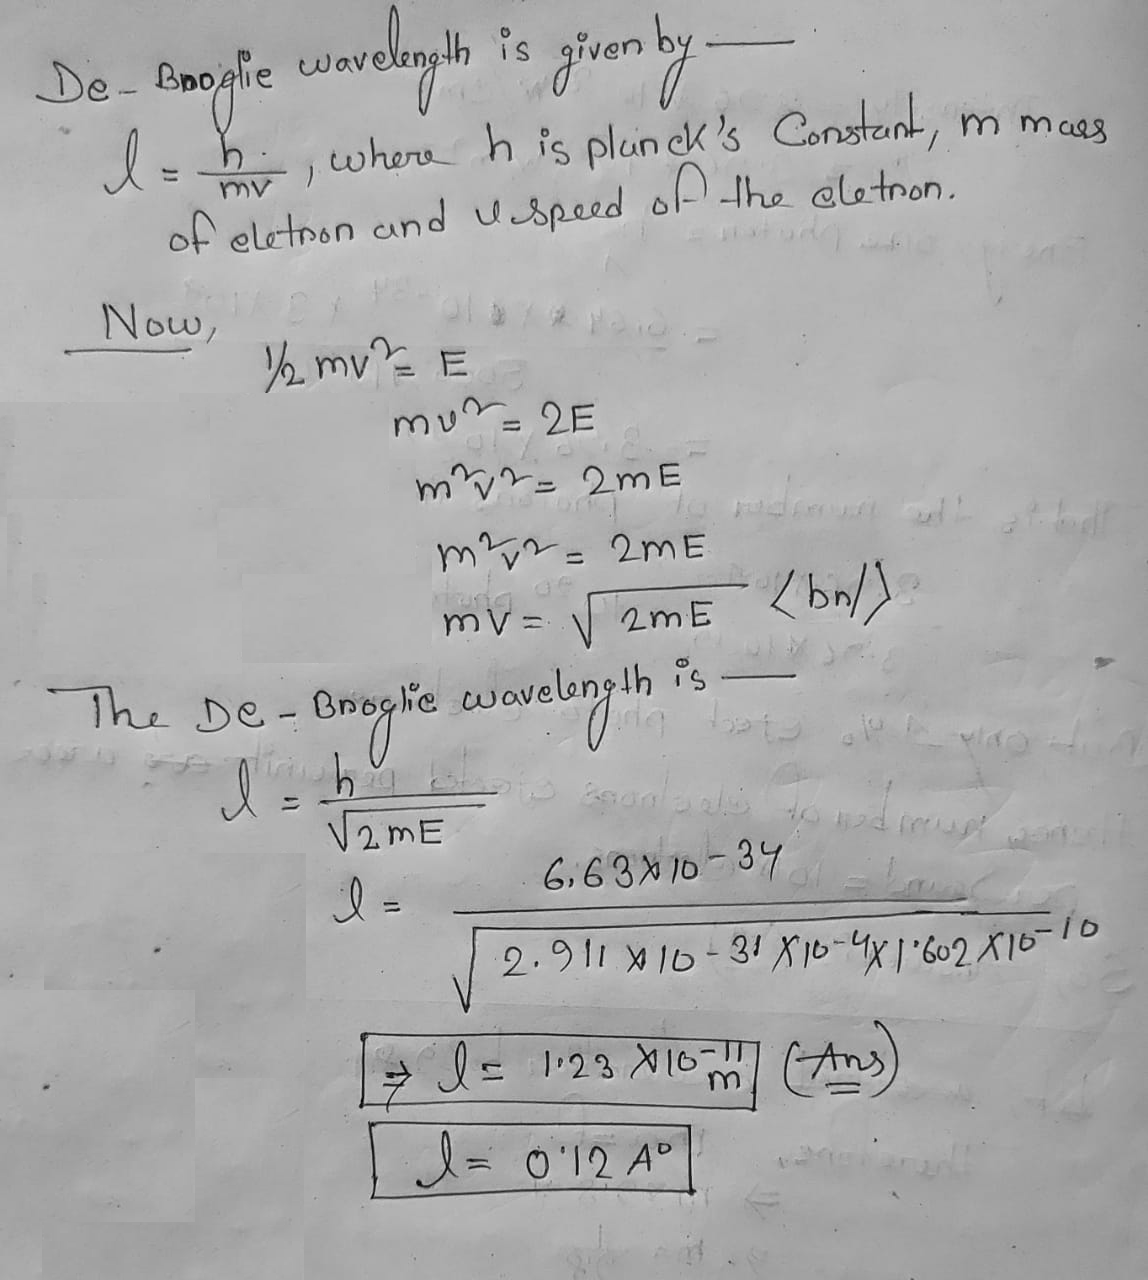 De-Broglie wavelength is given by —
l = h/mv, where h is planck's Constant, m mass
of eletron and v speed of the eletron.
Now,
1/2 mv² = E
mv² = 2E
m²v² = 2mE
m²v² = 2mE
mv = √2mE <bn/>
The De-Broglie wavelength is —
l = h/√2mE
l = 6.63×10-34 / √2.911×10-31×10-4×1.602×10⁻¹⁰
⇒ l = 1.23×10⁻¹¹ m (Ans)
l = 0.12 A°